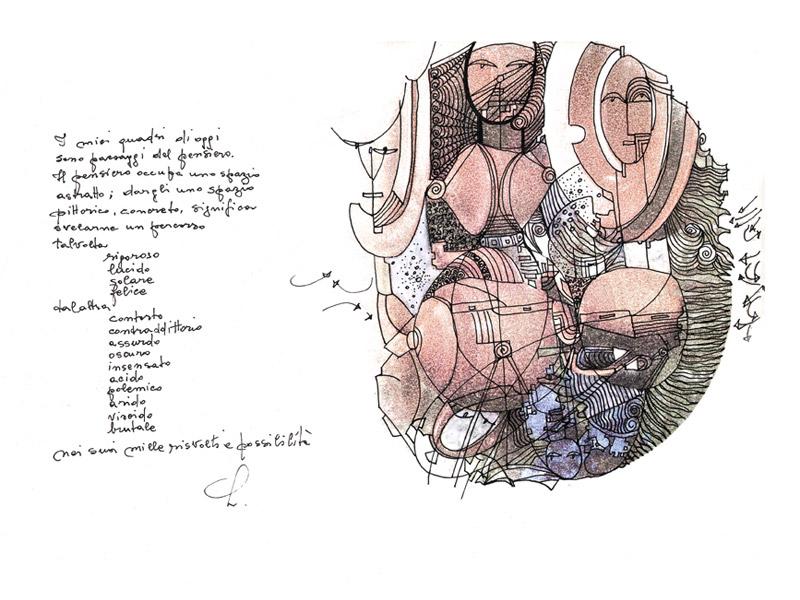 I miei quadri di oggi
sono paesaggi del pensiero.
Il pensiero occupa uno spazio
astratto; dargli uno spazio
pittorico, concreto, significa
svelarne un percorso
talvolta
rigoroso
lucido
solare
felice
dall'altra
contorto
contraddittorio
assurdo
oscuro
insensato
acido
polemico
arido
viscido
brutale
nei suoi mille risvolti e possibilità